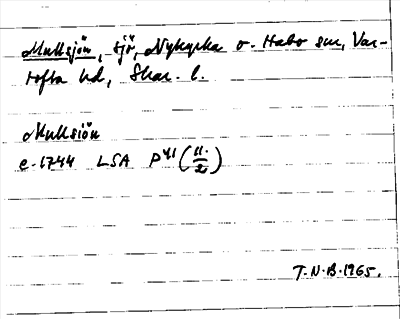 Mullsjön, sjö, Nykyrka o. Habo snr, Var-
tofta hd, Skar. l.
Mullsiön
c. 1744 LSA P41 (11/2)
T.N.B. 1965.